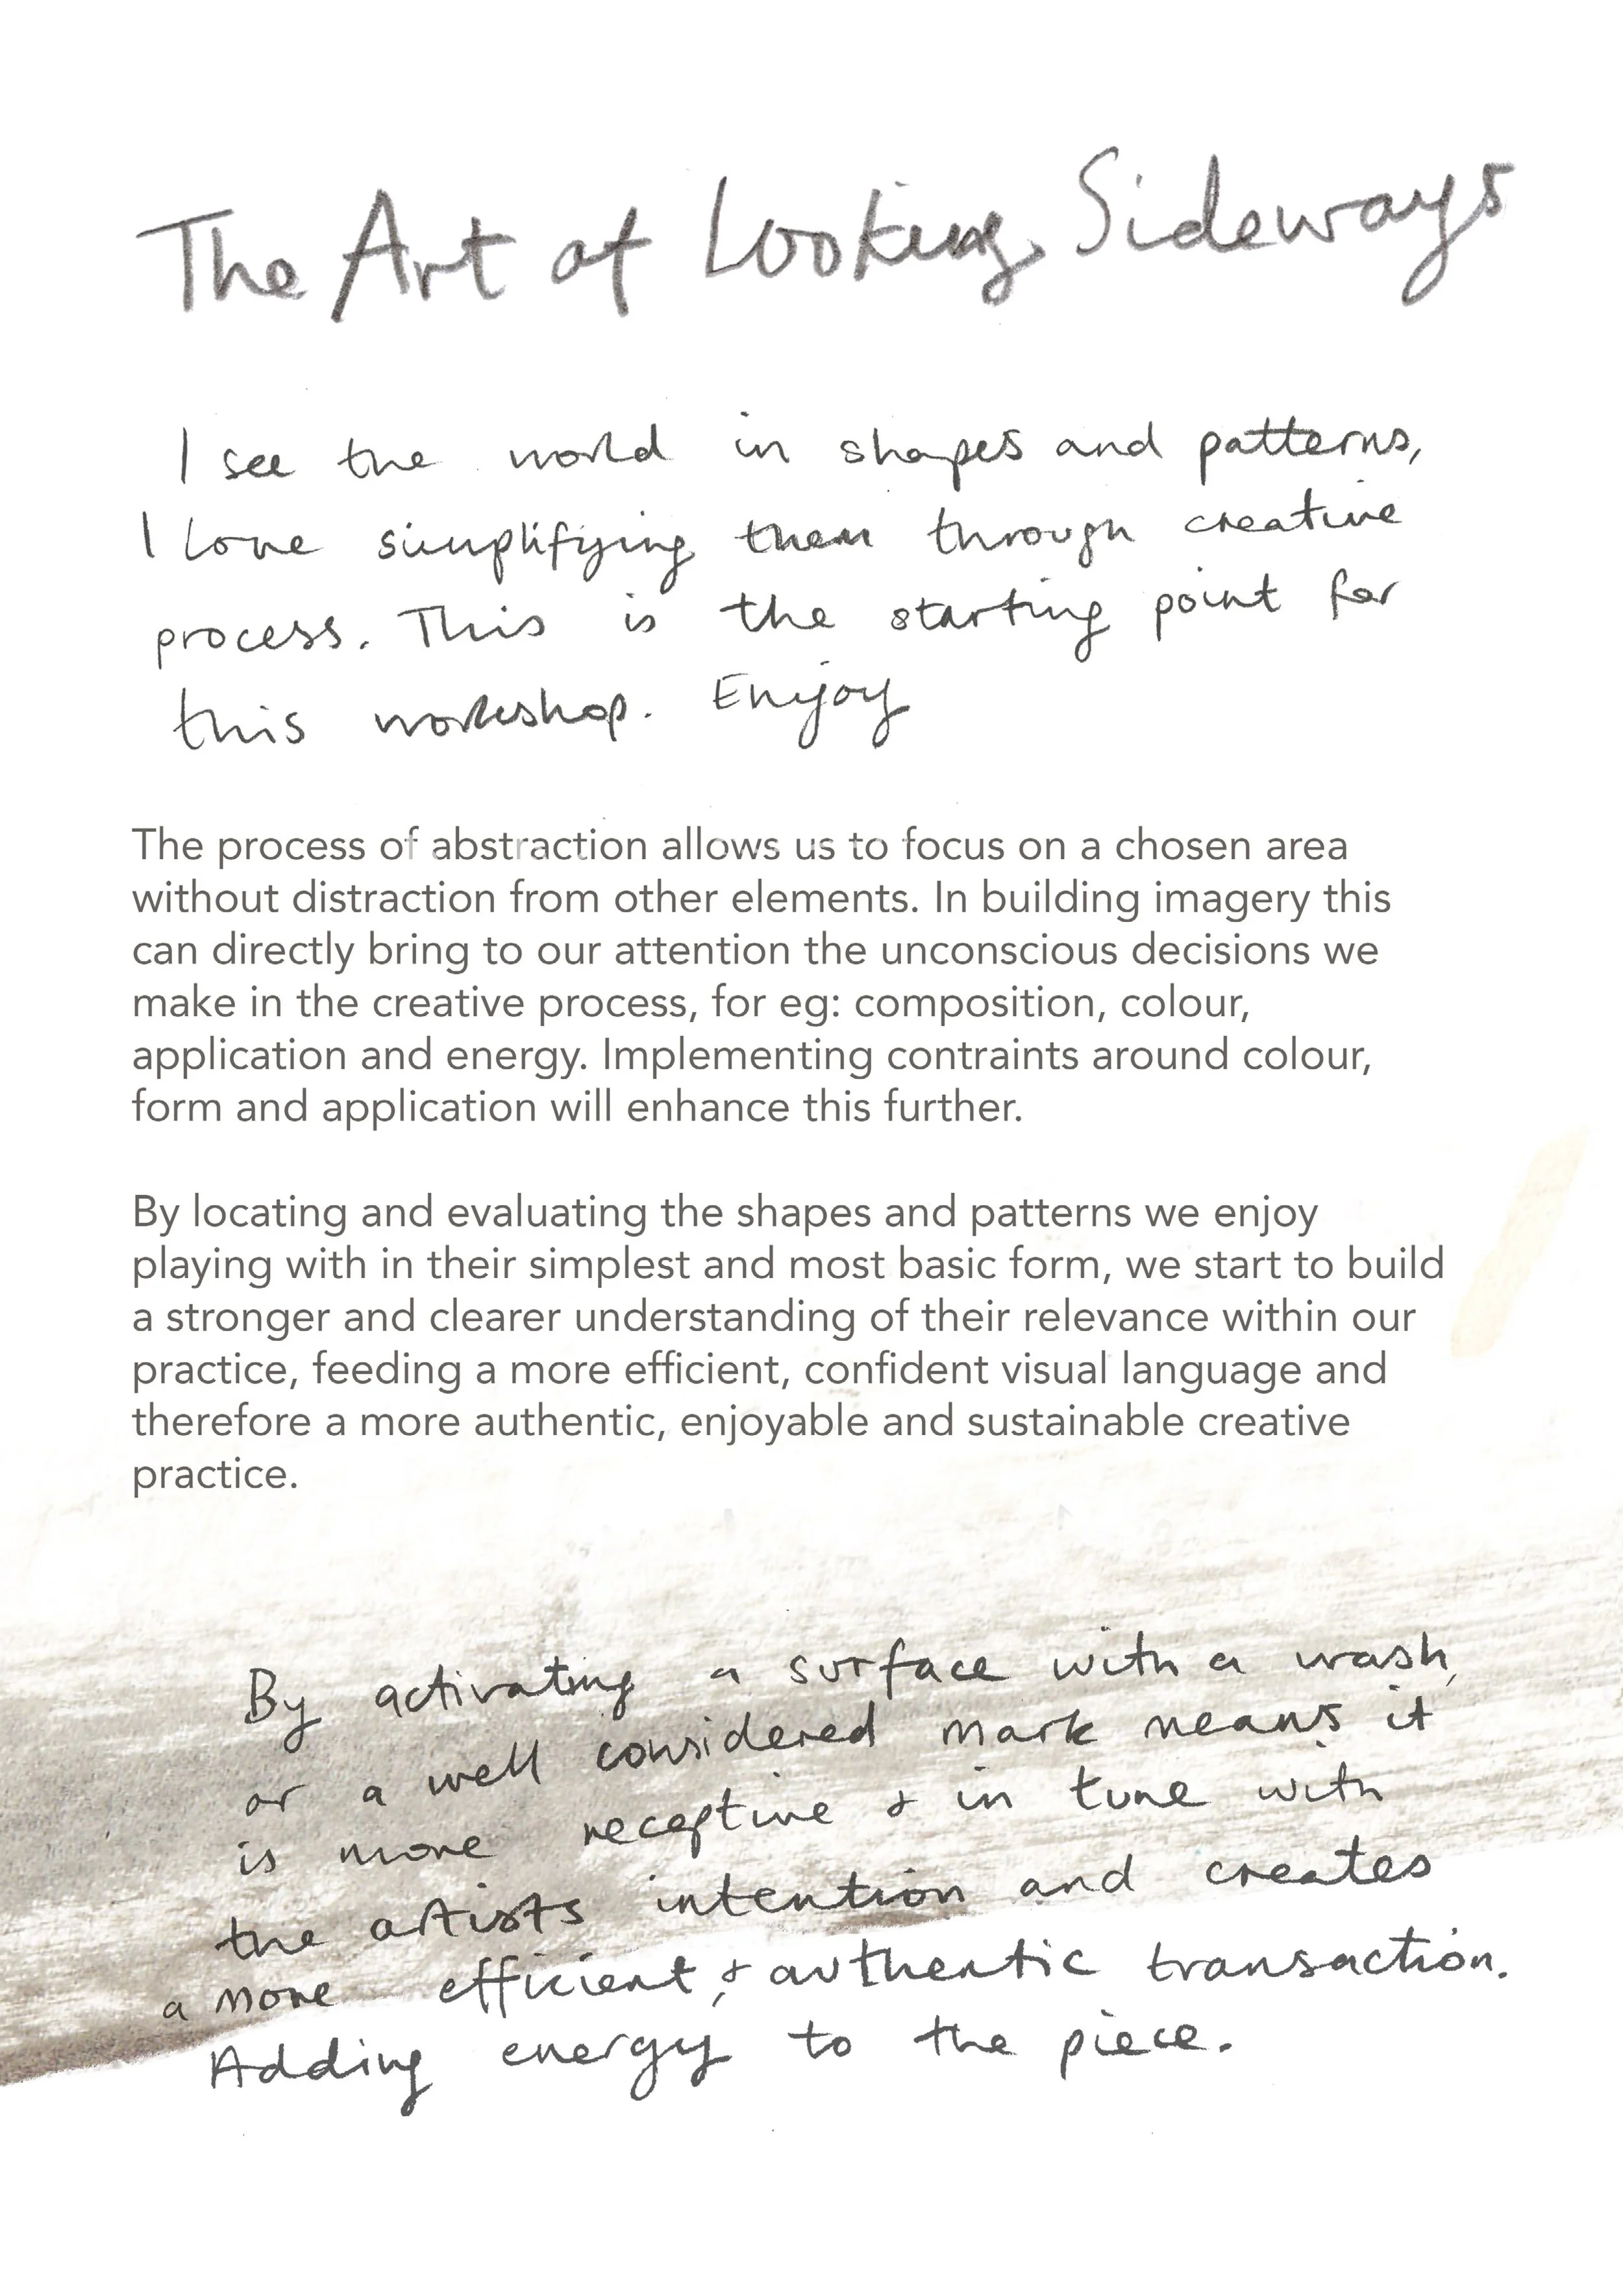 The Art of Looking Sideways
I see the world in shapes and patterns,
I love simplifying them through creative
process. This is the starting point for
this workshop. Enjoy
The process of abstraction allows us to focus on a chosen area
without distraction from other elements. In building imagery this
can directly bring to our attention the unconscious decisions we
make in the creative process, for eg: composition, colour,
application and energy. Implementing contraints around colour,
form and application will enhance this further.
By locating and evaluating the shapes and patterns we enjoy
playing with in their simplest and most basic form, we start to build
a stronger and clearer understanding of their relevance within our
practice, feeding a more efficient, confident visual language and
therefore a more authentic, enjoyable and sustainable creative
practice.
By activating a surface with a wash,
or a well considered mark means it
is more receptive & in tune with
the artists intention and creates
a more efficient, & authentic transaction.
Adding energy to the piece.